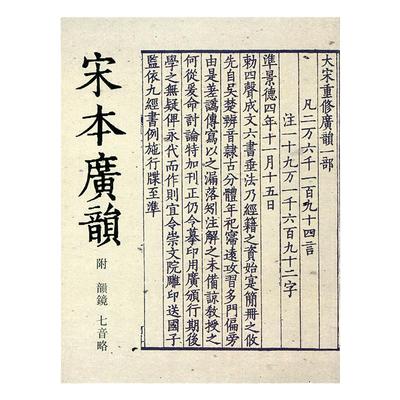 宋本廣韻
附 韻鏡 七音略
大宋重修廣韻一部
凡二万六千一百九十四言
注一十九万一千六百九十二字
準景德四年十一月十五日
勑四聲成文六書垂法乃經籍之資始寔簡冊之攸
先自吳楚辨音隸古分體年祀寖遠攻習多門偏旁
由是差譌傳寫以之漏落矧注解之未備諒教授之
何從爰命討論特加刊正仍令摹印用廣頒行期後
學之無疑俾永代而作則宜令崇文院雕印送國子
監依九經書例施行牒至準